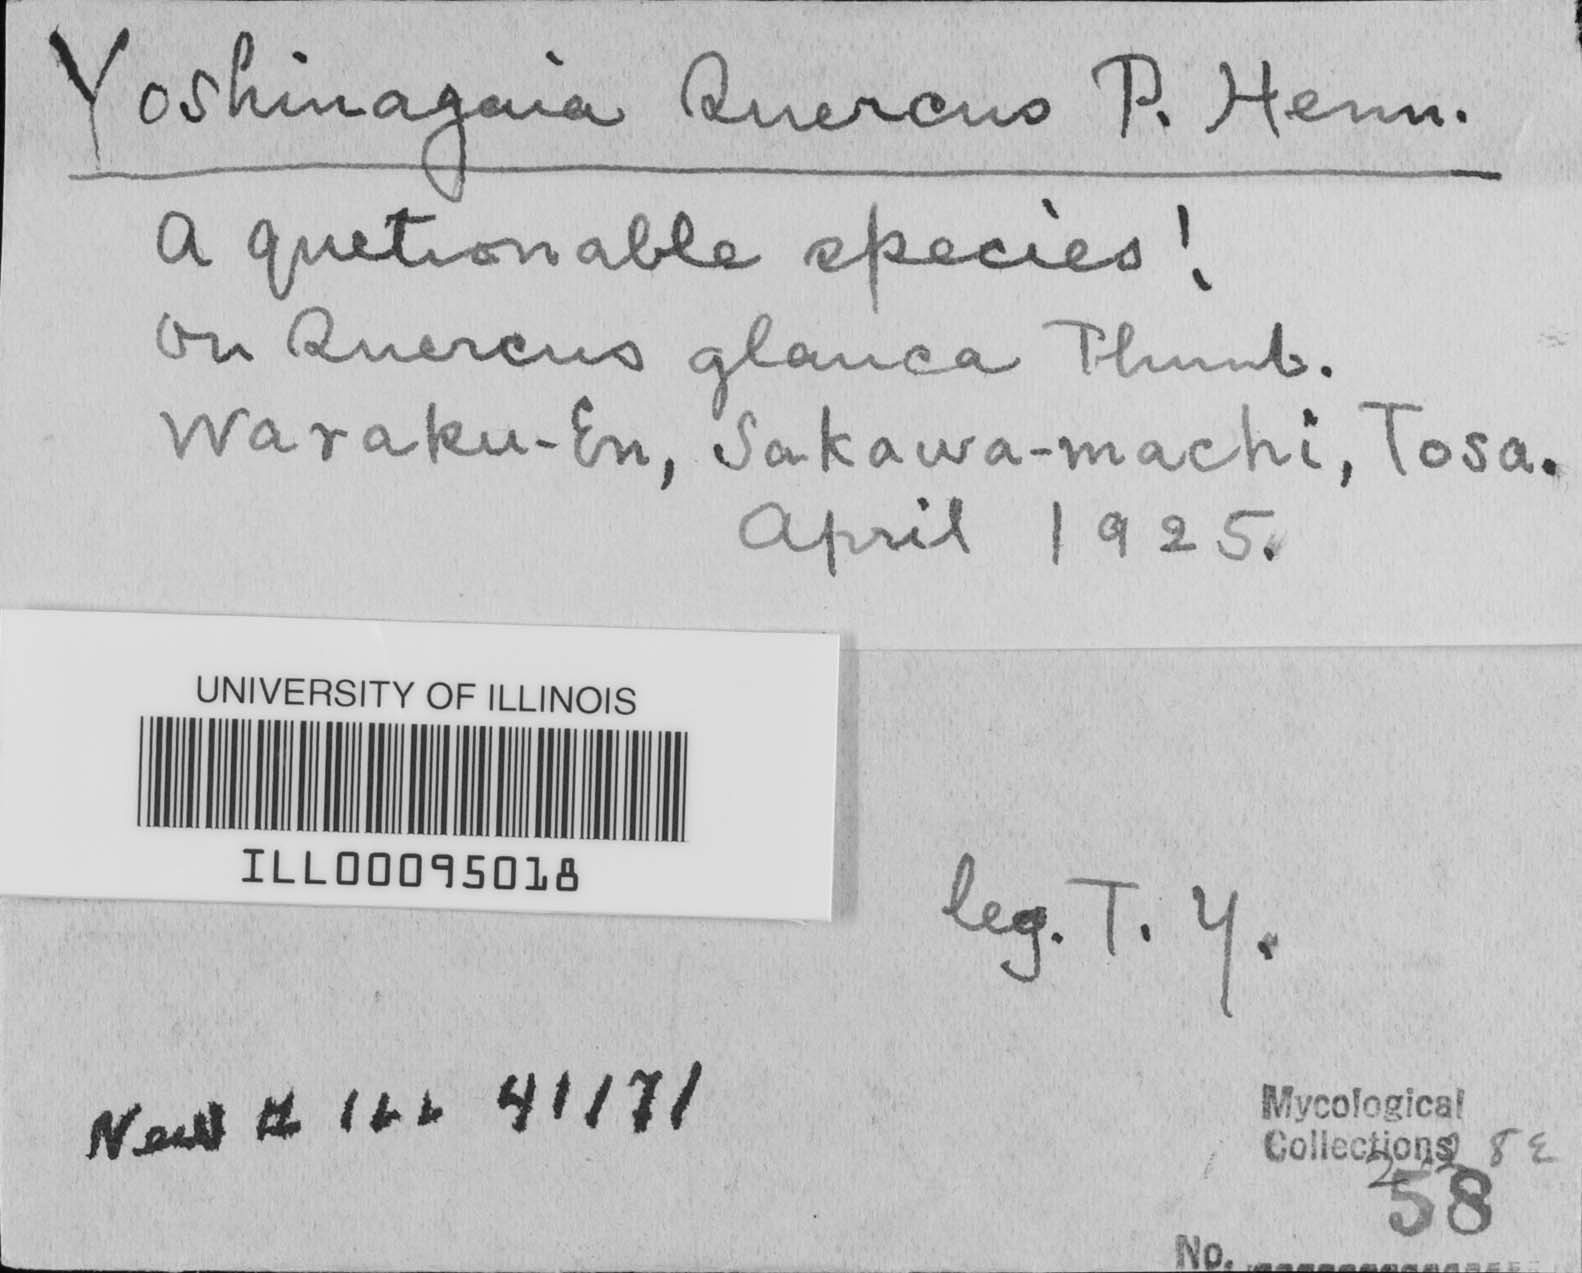 Yoshinagaia Quercus P. Henn.
A quetionable species!
On Quercus glauca Thunb.
Waraku-En, Sakawa-machi, Tosa.
April 1925.
UNIVERSITY OF ILLINOIS
ILL00095018
leg. T. Y.
New # ILL 41171
Mycological
Collections
58
No.